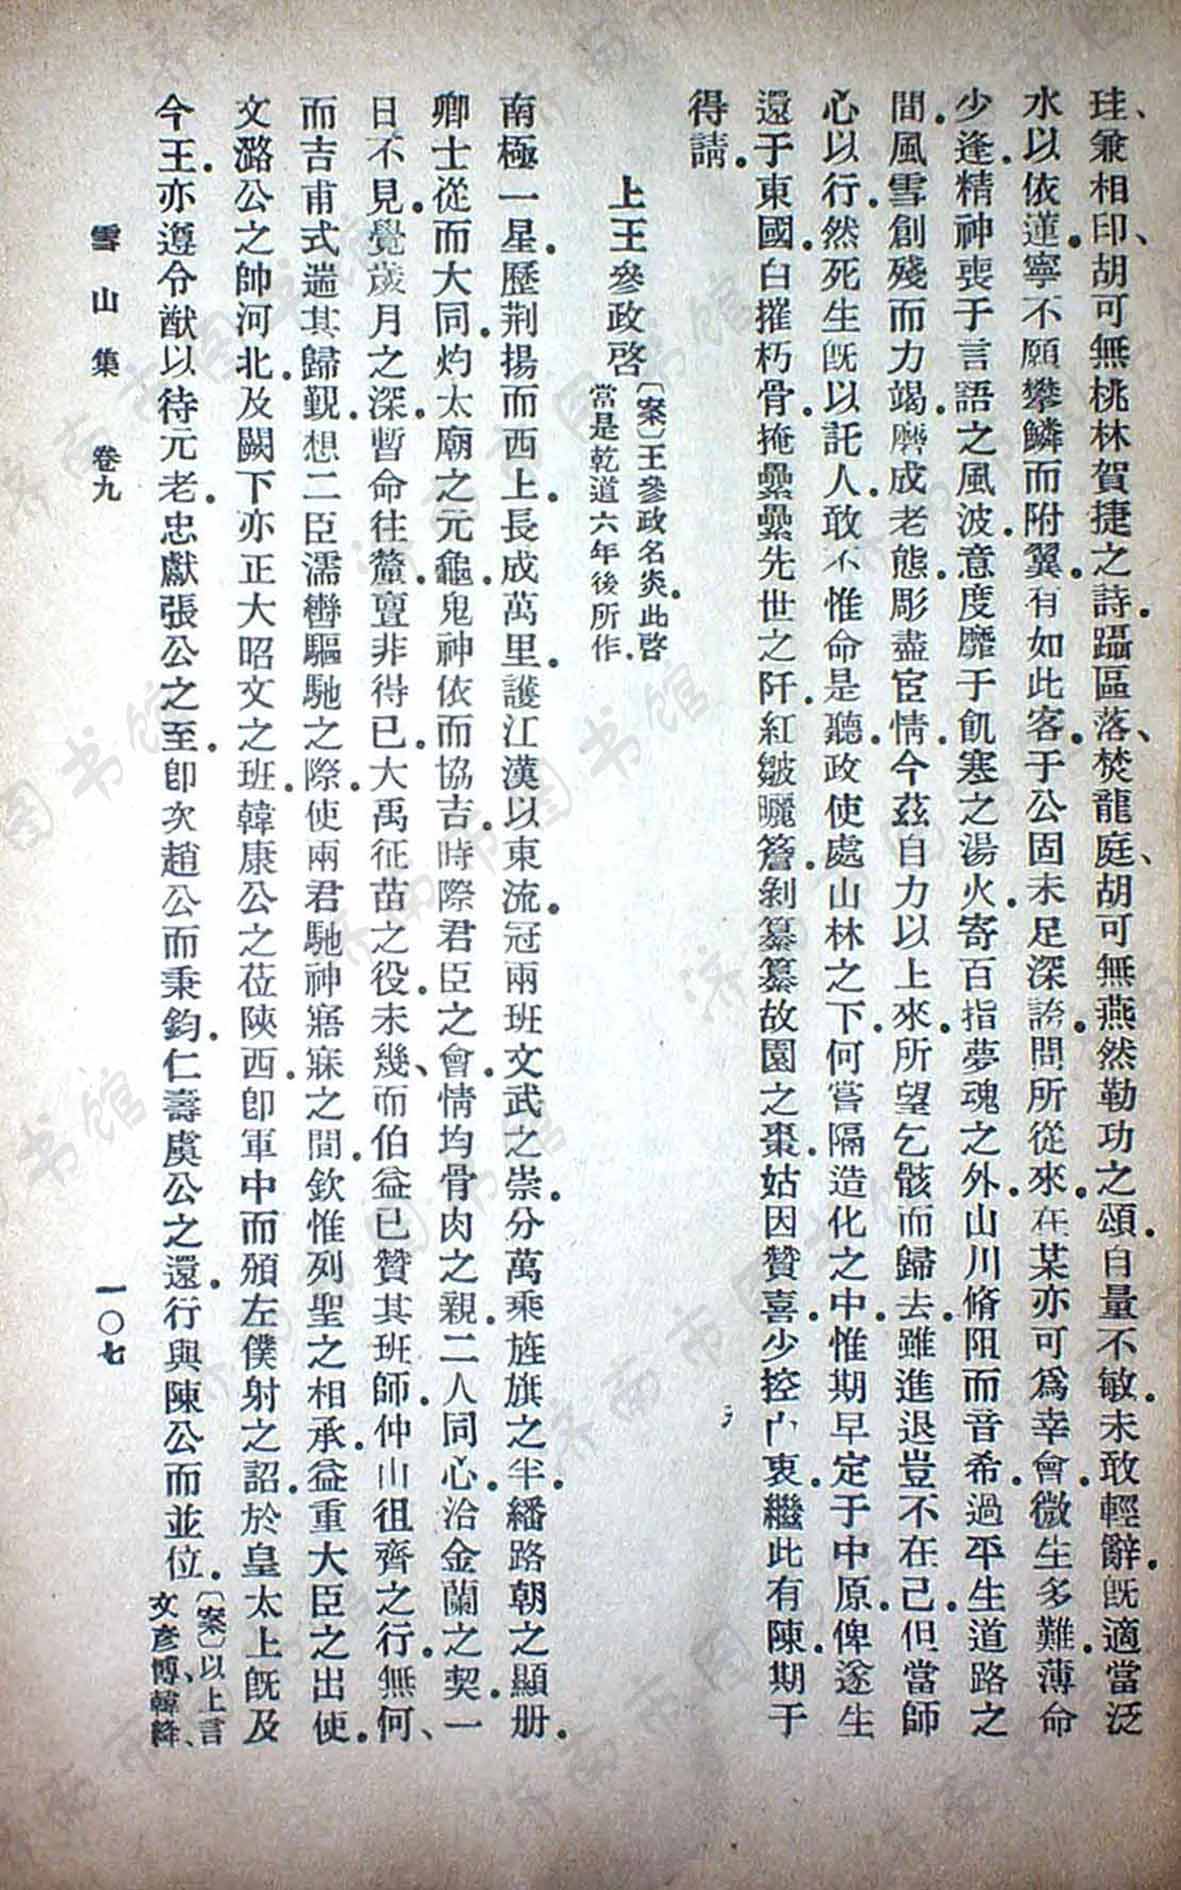 珪、兼相印、胡可無桃林賀捷之詩。躡區落、焚龍庭、胡可無燕然勒功之頌。自量不敏。未敢輕辭。旣適當泛
水以依蓮。寧不願攀鱗而附翼。有如此客。于公固未足深誇。問所從來。在某亦可爲幸會。微生多難。薄命
少逢。精神喪于言語之風波。意度靡于飢寒之湯火。寄百指夢魂之外。山川脩阻而音希。過平生道路之
間。風雪創殘而力竭。磨成老態。彫盡宦情。今茲自力以上來。所望乞骸而歸去。雖進退豈不在己。但當師
心以行。然死生旣以託人。敢不惟命是聽。政使處山林之下。何嘗隔造化之中。惟期早定于中原。俾遂生
還于東國。白摧朽骨。掩纍纍先世之阡。紅皺曬簷。剝纂纂故園之棗。姑因贊喜。少控衷。繼此有陳。期于
得請。
上王參政啓
〔案〕王參政名炎。此啓
當是乾道六年後所作。
南極一星。歷荆揚而西上。長成萬里。護江漢以東流。冠兩班文武之崇。分萬乘旌旗之半。繙路朝之顯册。
卿士從而大同。灼太廟之元龜。鬼神依而協吉。時際君臣之會。情均骨肉之親。二人同心。洽金蘭之契。一
日不見。覺歲月之深。暫命往釐。亶非得已。大禹征苗之役。未幾、而伯益已贊其班師。仲山徂齊之行。無何、
而吉甫式遄其歸覲。想二臣濡轡驅馳之際。使兩君馳神寤寐之間。欽惟列聖之相承。益重大臣之出使。
文潞公之帥河北。及闕下亦正大昭文之班。韓康公之莅陝西。卽軍中而頒左僕射之詔。於皇太上。旣及
今王。亦遵令猷。以待元老。忠獻張公之至。卽次趙公而秉鈞。仁壽虞公之還。行與陳公而並位。
〔案〕以上言
文彥博、韓絳、
雪山集 卷九 一〇七